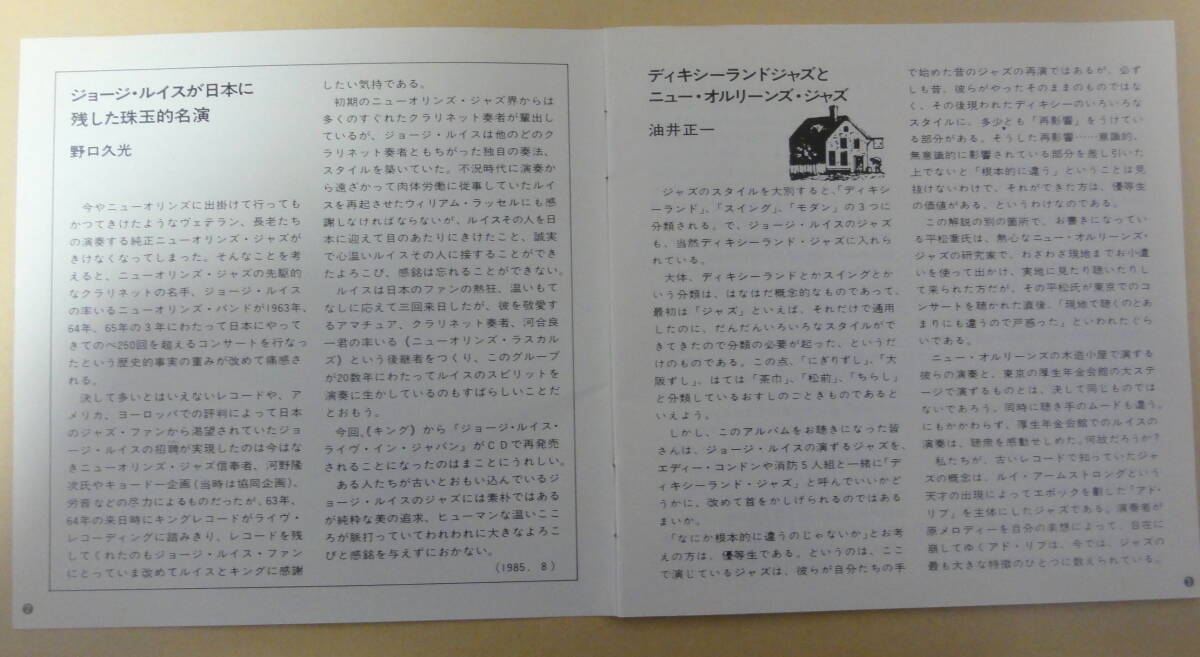 ジョージ・ルイスが日本に
残した珠玉的名演
野口久光
今やニューオリンズに出掛けて行っても
かつてきけたようなヴェテラン、長老たち
の演奏する純正ニューオリンズ・ジャズが
きけなくなってしまった。そんなことを考
えると、ニューオリンズ・ジャズの先駆的
なクラリネットの名手、ジョージ・ルイス
の率いるニューオリンズ・バンドが1963年、
64年、65年の3年にわたって日本にやって
きてのべ250回を超えるコンサートを行なっ
たという歴史的事実の重みが改めて痛感さ
れる。
決して多いとはいえないレコードや、ア
メリカ、ヨーロッパでの評判によって日本
のジャズ・ファンから渇望されていたジョ
ージ・ルイスの招聘が実現したのは今はな
きニューオリンズ・ジャズ信奉者、河野隆
次氏やキョードー企画(当時は協同企画)、
労音などの尽力によるものだったが、63年、
64年の来日時にキングレコードがライヴ・
レコーディングに踏みきり、レコードを残
してくれたのもジョージ・ルイス・ファン
にとっていま改めてルイスとキングに感謝
したい気持である。
初期のニューオリンズ・ジャズ界からは
多くのすぐれたクラリネット奏者が輩出し
ているが、ジョージ・ルイスは他のどのク
ラリネット奏者ともちがった独自の奏法、
スタイルを築いていた。不況時代に演奏か
ら遠ざかって肉体労働に従事していたルイ
スを再起させたウィリアム・ラッセルにも感
謝しなければならないが、ルイスその人を日
本に迎えて目のあたりにきけたこと、誠実
で心温いルイスその人に接することができ
たよろこび、感銘は忘れることができない。
ルイスは日本のファンの熱狂、温いもて
なしに応えて三回来日したが、彼を敬愛す
るアマチュア、クラリネット奏者、河合良
一君の率いる《ニューオリンズ・ラスカル
ズ》という後継者をつくり、このグループ
が20数年にわたってルイスのスピリットを
演奏に生かしているのもすばらしいことだ
とおもう。
今回、《キング》から『ジョージ・ルイス・
ライヴ・イン・ジャパン』がCDで再発売
されることになったのはまことにうれしい。
ある人たちが古いとおもい込んでいるジ
ョージ・ルイスのジャズには素朴ではある
が純粋な美の追求、ヒューマンな温いここ
ろが脈打っていてわれわれに大きなよろこ
びと感銘を与えずにおかない。
(1985. 8)
❷
ディキシーランドジャズと
ニュー・オルリーンズ・ジャズ
油井正一
ジャズのスタイルを大別すると、「ディキシ
ーランド」、「スイング」、「モダン」の3つに
分類される。で、ジョージ・ルイスのジャズ
も、当然ディキシーランド・ジャズに入れら
れている。
大体、ディキシーランドとかスイングとか
いう分類は、はなはだ概念的なものであって、
最初は「ジャズ」といえば、それだけで通用
したのに、だんだんいろいろなスタイルがで
きてきたので分類の必要が起った、というだ
けのものである。この点、「にぎりずし」、「大
阪ずし」、はては「茶巾」、「松前」、「ちらし」
と分類しているおすしのごときものであると
いえよう。
しかし、このアルバムをお聴きになった皆
さんは、ジョージ・ルイスの演ずるジャズを、
エディー・コンドンや消防5人組と一緒に「デ
ィキシーランド・ジャズ」と呼んでいいかど
うかに、改めて首をかしげられるのではある
まいか。
「なにか根本的に違うのじゃないか」とお考
えの方は、優等生である。というのは、ここ
で演じているジャズは、彼らが自分たちの手
で始めた昔のジャズの再演ではあるが、必ず
しも昔、彼らがやったそのままのものではな
く、その後現われたディキシーのいろいろな
スタイルに、多少とも「再影響」をうけてい
る部分がある。そうした再影響……意識的、
無意識的に影響されている部分を差し引いた
上でないと「根本的に違う」ということは見
抜けないわけで、それができた方は、優等生
の価値がある、というわけなのである。
この解説の別の箇所で、お書きになってい
る平松喬氏は、熱心なニュー・オルリーンズ・
ジャズの研究家で、わざわざ現地までお小遣
いを使って出かけ、実地に見たり聴いたりし
て来られた方だが、その平松氏が東京でのコ
ンサートを聴かれた直後、「現地で聴くのとあ
まりにも違うので戸惑った」といわれたぐら
いである。
ニュー・オルリーンズの木造小屋で演ずる
彼らの演奏と、東京の厚生年金会館の大ステ
ージで演ずるものとは、決して同じものでは
ないであろう。同時に聴き手のムードも違う。
にもかかわらず、厚生年金会館でのルイスの
演奏は、聴衆を感動せしめた。何故だろうか?
私たちが、古いレコードで知っていたジャ
ズの概念は、ルイ・アームストロングという
天才の出現によってエポックを劃した「アド・
リブ」を主体にしたジャズである。演奏者が
原メロディーを自分の楽想によって、自在に
崩してゆくアド・リブは、今では、ジャズの
最も大きな特徴のひとつに数えられている。
❸